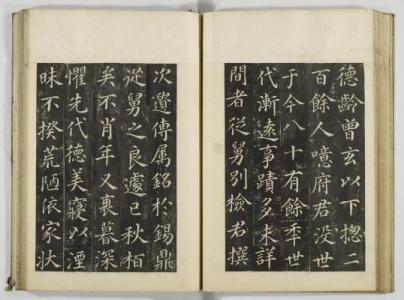 德齡曾玄以下揔二
百餘人噫府君没世
于今八十有餘秊世
代漸遠事蹟多未詳
間者從舅別檢君撰
次遺傳属銘於錫鼎
從舅之良遽已秋栢
矣不肖年又衰暮深
懼先代德美寖以湮
昧不揆荒陋依家狀